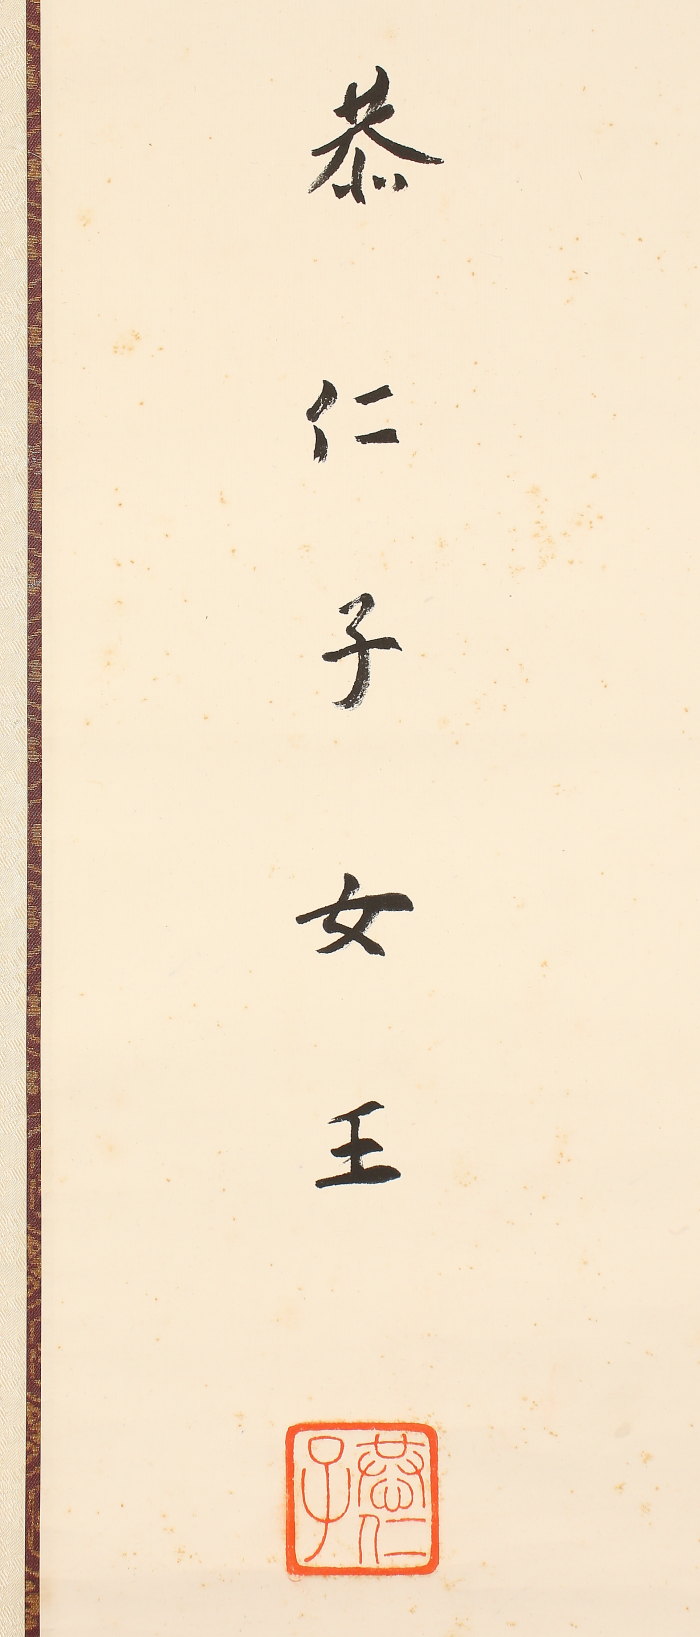 恭仁子女王
恭仁
子